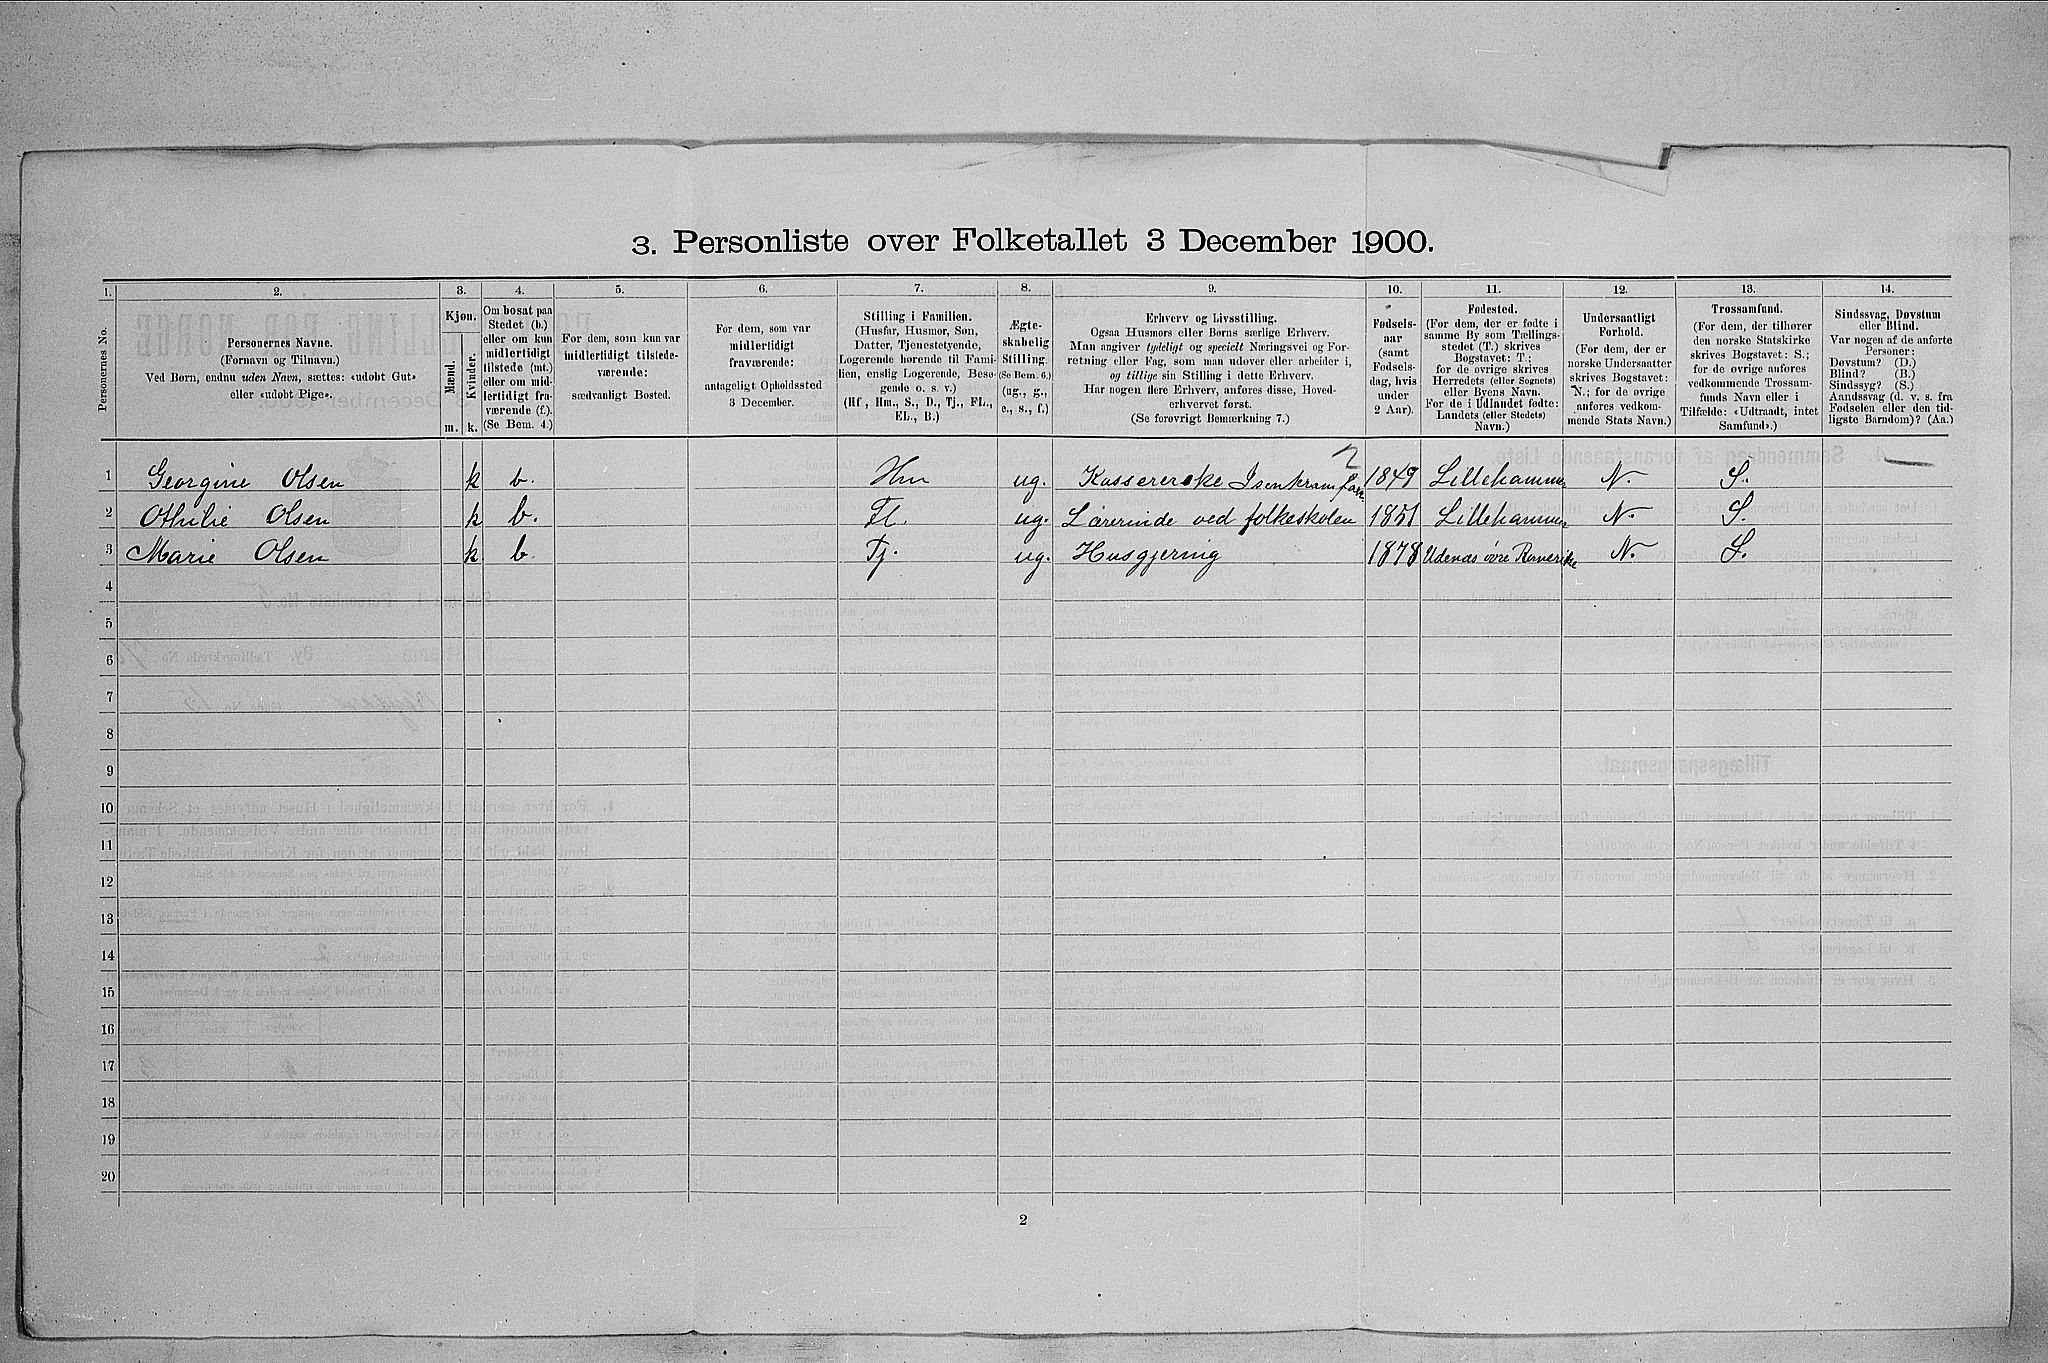 3. Personliste over Folketallet 3 December 1900.
1.
Personernes No.
2.
Personernes Navne.
(Fornavn og Tilnavn.)
Ved Børn, endnu uden Navn, sættes: «udøbt Gut»
eller «udøbt Pige».
3.
Kjøn.
Mænd.
Kvinder.
m.
k.
4.
Om bosat paa
Stedet (b.)
eller om kun
midlertidigt
tilstede (mt.)
eller om mid-
lertidigt fra-
værende (f.).
(Se Bem. 4.)
5.
For dem, som kun var
midlertidigt tilstede-
værende:
sædvanligt Bosted.
6.
For dem, som var
midlertidigt
fraværende:
antageligt Opholdssted
3 December.
7.
Stilling i Familien.
(Husfar, Husmor, Søn,
Datter, Tjenestetyende,
Logerende hørende til Fami-
lien, enslig Logerende, Besø-
gende o. s. v.)
(Hf, Hm., S., D., Tj., FL.,
EL., B.)
8.
Ægte-
skabelig
Stilling.
(Se Bem. 6.)
(ug., g.,
e., s., f.)
9.
Erhverv og Livsstilling.
Ogsaa Husmors eller Børns særlige Erhverv.
Man angiver tydeligt og specielt Næringsvei og For-
retning eller Fag, som man udøver eller arbeider i,
og tillige sin Stilling i dette Erhverv.
Har nogen flere Erhverv, anføres disse, Hoved-
erhvervet først.
(Se forøvrigt Bemærkning 7.)
10.
Fødsels-
aar
(samt
Fødsels-
dag, hvis
under
2 Aar).
11.
Fødested.
(For dem, der er fødte i
samme By som Tællings-
stedet (T.) skrives
Bogstavet: T.;
for de øvrige skrives
Herredets (eller Sognets)
eller Byens Navn.
For de i Udlandet fødte:
Landets (eller Stedets)
Navn.)
12.
Undersaatligt
Forhold.
(For dem, der er
norske Undersaatter
skrives Bogstavet:
N.; for de øvrige
anføres vedkom-
mende Stats Navn.)
13.
Trossamfund.
(For dem, der tilhører
den norske Statskirke
skrives Bogstavet: S.;
for de øvrige anføres
vedkommende Trossam-
funds Navn eller i
Tilfælde: «Udtraadt, intet
Samfund».)
14.
Sindssvag, Døvstum
eller Blind.
Var nogen af de anførte
Personer:
Døvstum? (D.)
Blind? (B.)
Sindssyg? (S.)
Aandssvag (d. v. s. fra
Fødselen eller den tid-
ligste Barndom)? (Aa.)
1 Georgine Olsen k b. Hm ug. Kassererske Isenkramforr. 1849 Lillehammer N. S.
2 Othilie Olsen k b. Fl. ug. Lærerinde ved folkeskolen 1851 Lillehammer N. S.
3 Marie Olsen k b. Tj. ug. Husgjerning 1878 Udenæs øvre Romerike N. S.
4
5
6
7
8
9
10
11
12
13
14
15
16
17
18
19
20
2